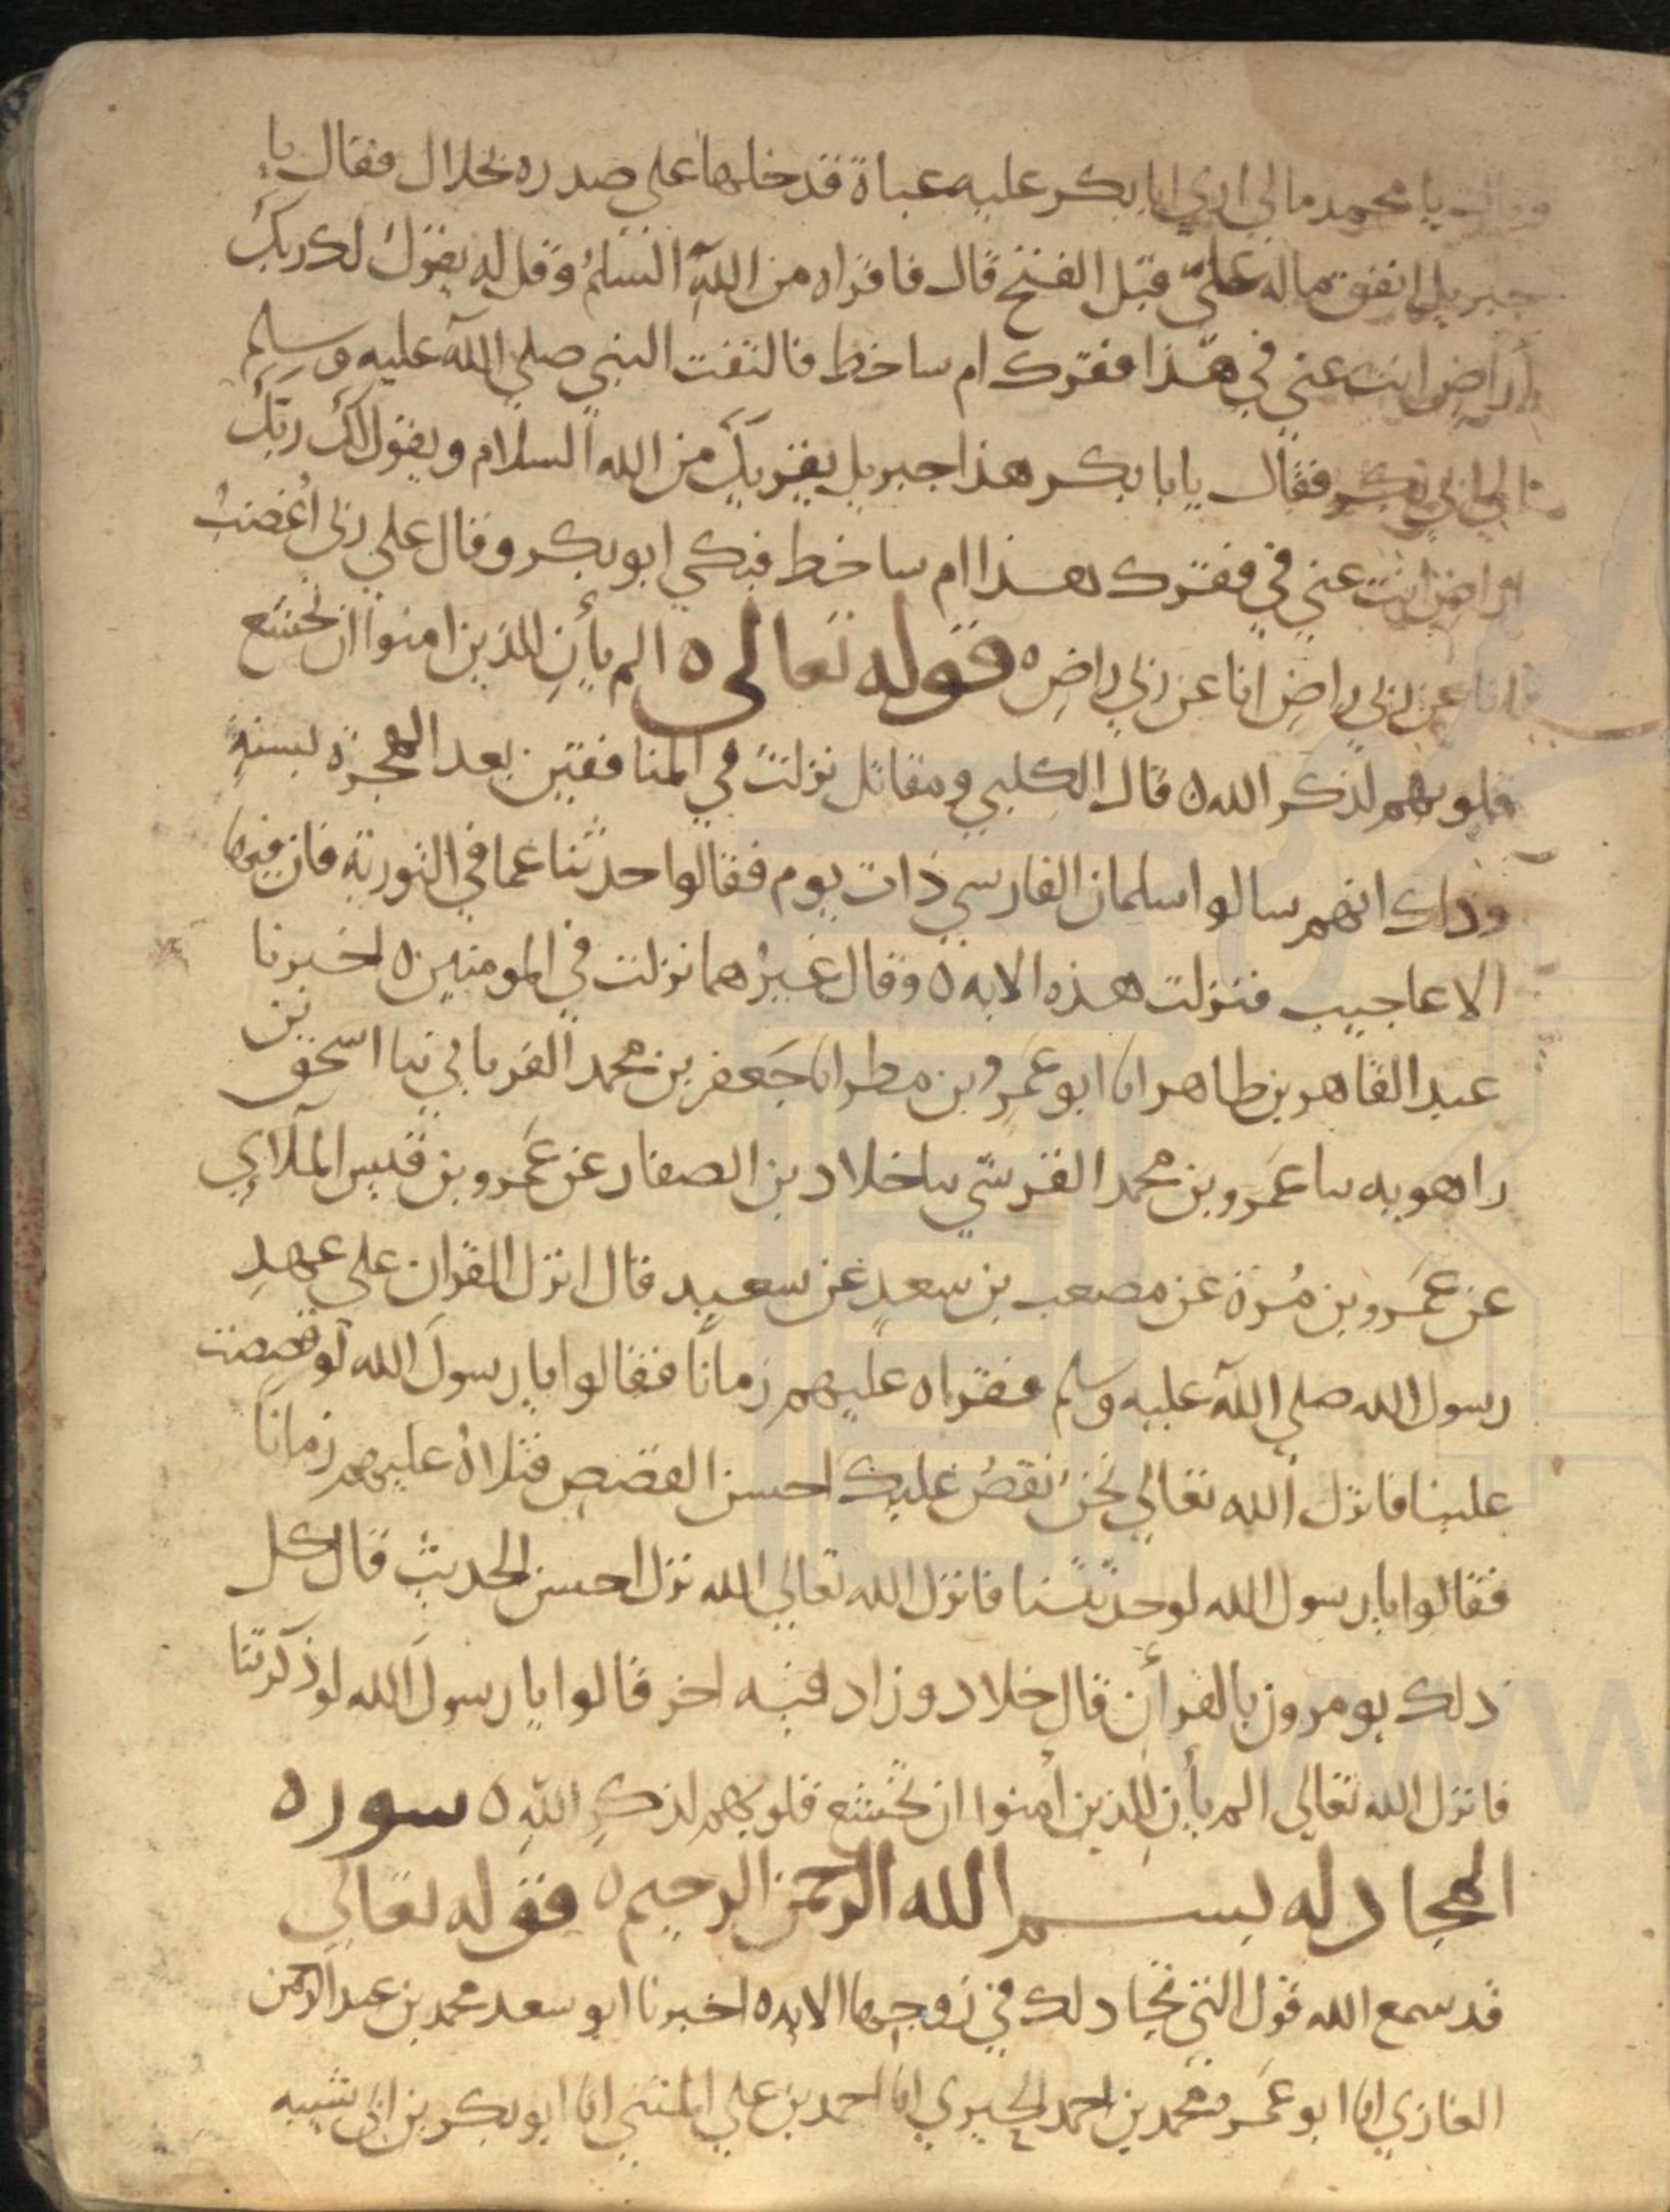 وقال يا محمد مالي اري ابا بكر عليه عباة قد خلها على صدره بخلال فقال يا
جبريل انفق ماله عليّ قبل الفتح قال فاقراه من الله السلم وقل له يقول لك ربك
اراضٍ انت عني في هذا فقرك ام ساخط فالتفت النبي صلى الله عليه وسلم
الي ابي بكر فقال يابا بكر هذا جبريل يقريك من الله السلام ويقول لك ربك
اراضٍ انت عني في فقرك هذا ام ساخط فبكي ابو بكر وقال علي ربي اغضبُ
انا عن ربي راضٍ انا عن ربي راضٍ ه قوله تعالى ه الم يأنِ للذين امنوا ان تخشع
قلوبهم لذكر الله ه قال الكلبي ومقاتل نزلت في المنافقين بعد الهجرة بسنةٍ
وذاك انهم سالوا سلمان الفارسي ذات يوم فقالوا حدثنا عما في التورية فان فيها
الاعاجيب فنزلت هذه الايه ه وقال غيرُهما نزلت في المومنين ه اخبرنا
عبد القاهر بن طاهر انا ابو عمرو بن مطر انا جعفر بن محمد الفريابي نبا اسحق بن
راهويه نبا عمرو بن محمد القرشي نبا خلاد بن الصفار عن عمرو بن قيس الملاي
عن عمرو بن مُرة عن مصعب بن سعدٍ عن سعيد قال انزل القران على عهدِ
رسول الله صلى الله عليه وسلم فقراه عليهم زمانا فقالوا يا رسول الله لو قصصت
علينا فانزل الله تعالي نحن نقصُ عليك احسن القصص فتلاهُ عليهم زمانا
فقالوا يا رسول الله لو حدثتنا فانزل الله تعالي الله نزل احسن الحديث قال كل
ذلك يومرون بالقرأن قال خلاد وزاد فيه اخر قالوا يا رسول الله لو ذكرتنا
فانزل الله تعالي الم يأن للذين أمنوا ان تخشع قلوبهم لذكرِ اللهِ ه سوره
المجادله بسم الله الرحمن الرحيم ه قوله تعالى
قد سمع الله قول التي تجادلك في زوجها الايه ه اخبرنا ابو سعد محمد بن عبد الرحمن
الغازي انا ابو عمرو محمد بن احمد الحيري انا احمد بن علي المثني انا ابو بكر بن ابي شيبه